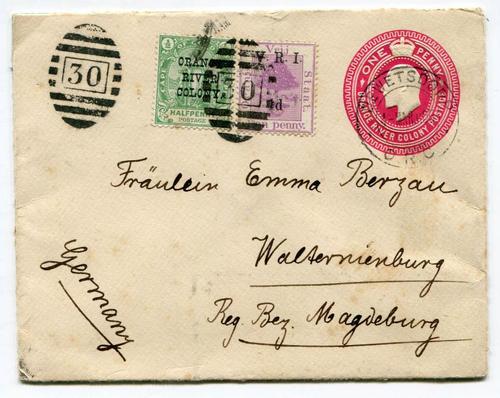 30
ORANGE
RIVER
COLONY.
HALFPENNY
POSTAGE
V. R. I.
Staat.
penny.
0
ONE PENNY
ORANGE RIVER COLONY POSTAGE
O.R.C.
Fräulein Emma Berzau
Walternienburg
Reg. Bez. Magdeburg
Germany